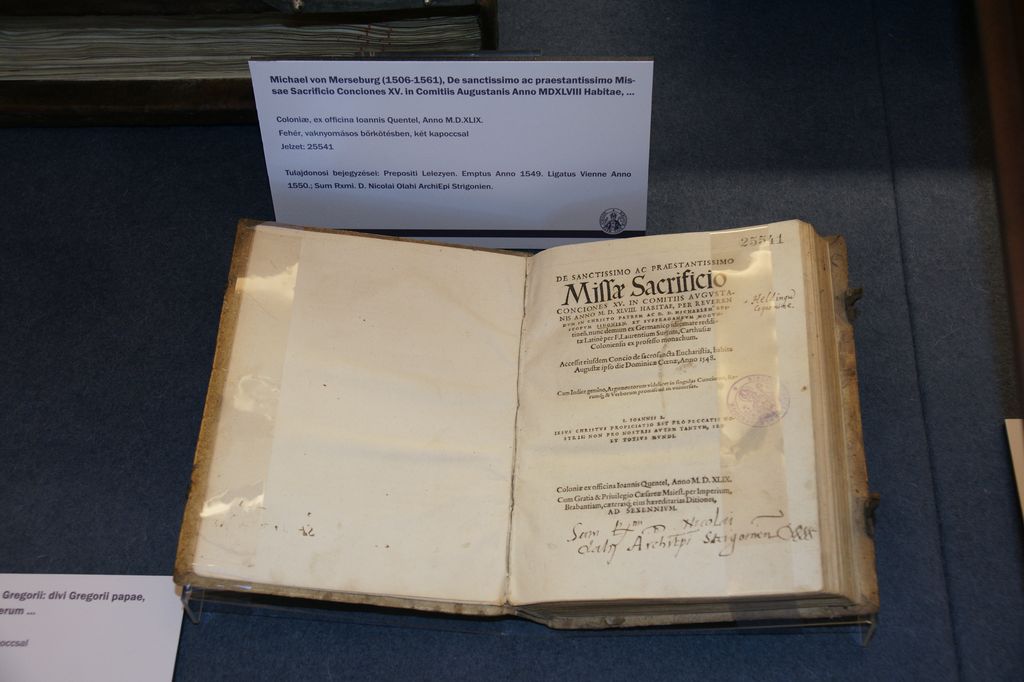 Michael von Merseburg (1506-1561), De sanctissimo ac praestantissimo Mis-
sae Sacrificio Conciones XV. in Comitiis Augustanis Anno MDXLVIII Habitae, ...
Coloniæ, ex officina Ioannis Quentel, Anno M.D.XLIX.
Fehér, vaknyomásos bőrkötésben, két kapoccsal
Jelzet: 25541
Tulajdonosi bejegyzései: Prepositi Lelezyen. Emptus Anno 1549. Ligatus Vienne Anno
1550.; Sum Rxmi. D. Nicolai Olahi ArchiEpi Strigonien.
25541
DE SANCTISSIMO AC PRAESTANTISSIMO
Missæ Sacrificio
CONCIONES XV. IN COMITIIS AVGVSTA-
NIS ANNO M. D. XLVIII. HABITAE, PER REVEREN
DVM IN CHRISTO PATREM AC D. D. MICHAELEM
tinen̄. nunc demum ex Germanico idiomate reddi-
tæ Latinè per F. Laurentium Surium, Carthusiæ
Coloniensis ex professo monachum.
Accessit eiusdem Concio de sacrosancta Eucharistia, habita
Augustæ ipso die Dominicæ Cœnæ, Anno 1548.
Cum Indice gemino, Argumentorum videlicet in singulas
rum, & Verborum
I. IOANNIS 2.
IESVS CHRISTVS PROPICIATIO EST PRO PECCATIS NO-
STRIS: NON PRO NOSTRIS AVTEM TANTVM, SED
ET TOTIVS MVNDI.
Coloniæ ex officina Ioannis Quentel, Anno M. D. XLIX.
Cum Gratia & Priuilegio Cæsareæ Maiest. per Imperium,
Brabantiam, cæterasq; eius hæreditarias Ditiones,
AD SEXENNIVM.
Sum Rxm D Nicolai
Olahj ArchiEpi Strigonien
Gregorii: divi Gregorii papae,
erum ...
poccsal